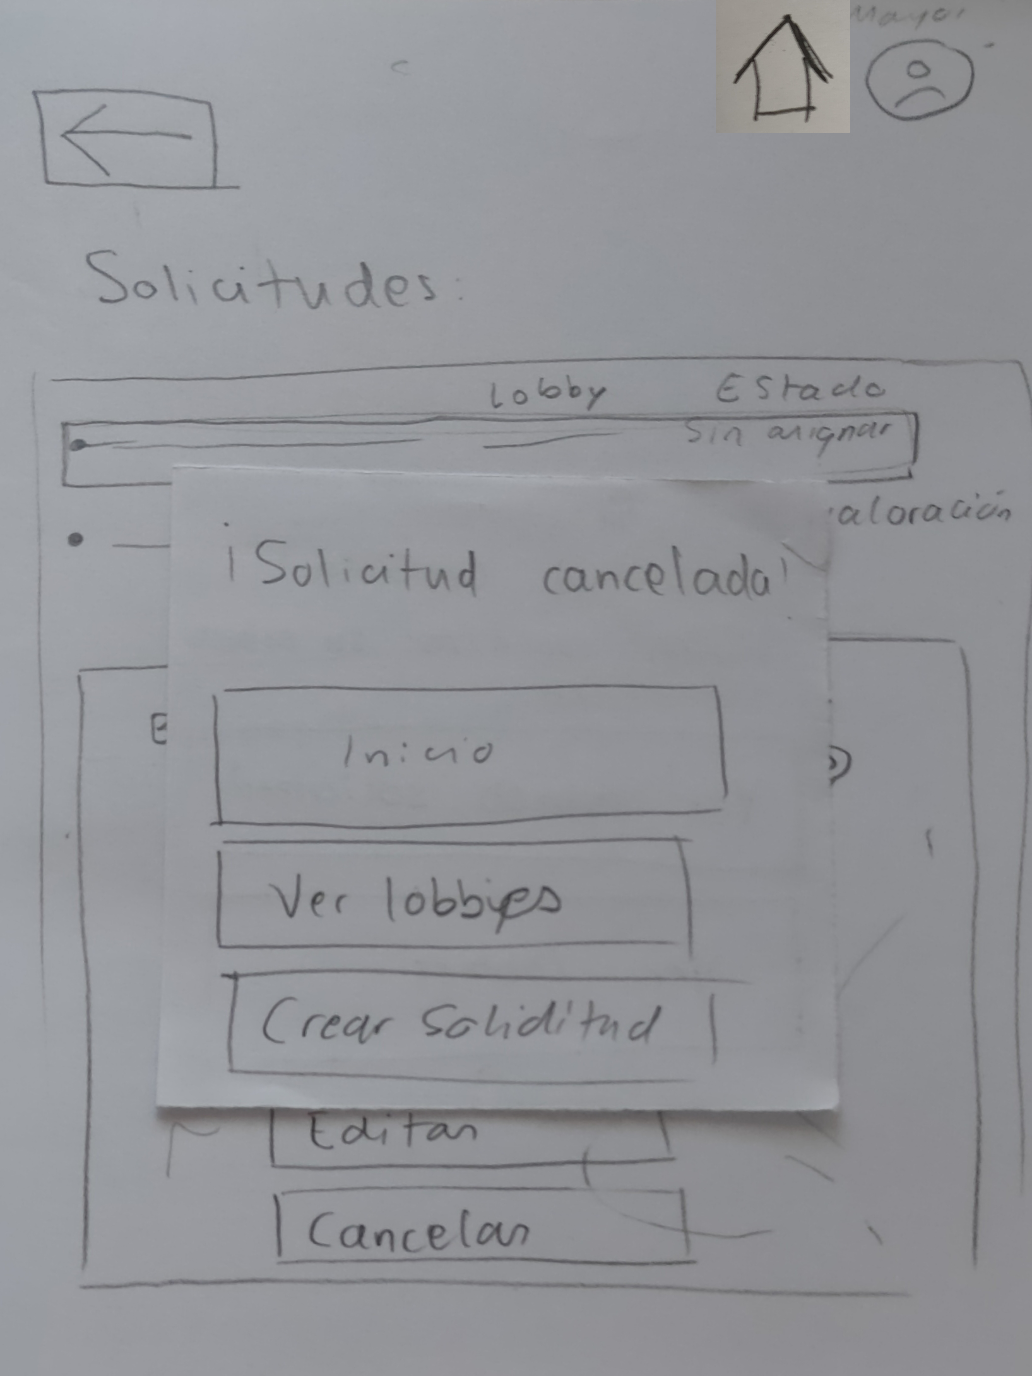 Mayor
Solicitudes:
Lobby Estado
Sin asignar
valoración
¡Solicitud cancelada!
Inicio
Ver lobbies
Crear Soliditud
Editar
Cancelar